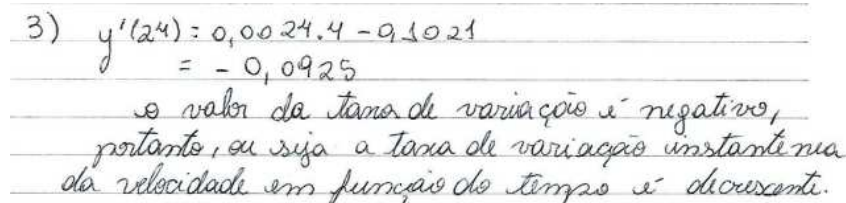 3) y'(24) = 0,0024.4 - 0,1021
= - 0,0925
o valor da taxa de variação é negativo,
portanto, ou seja a taxa de variação instantânea
da velocidade em função do tempo é decrescente.